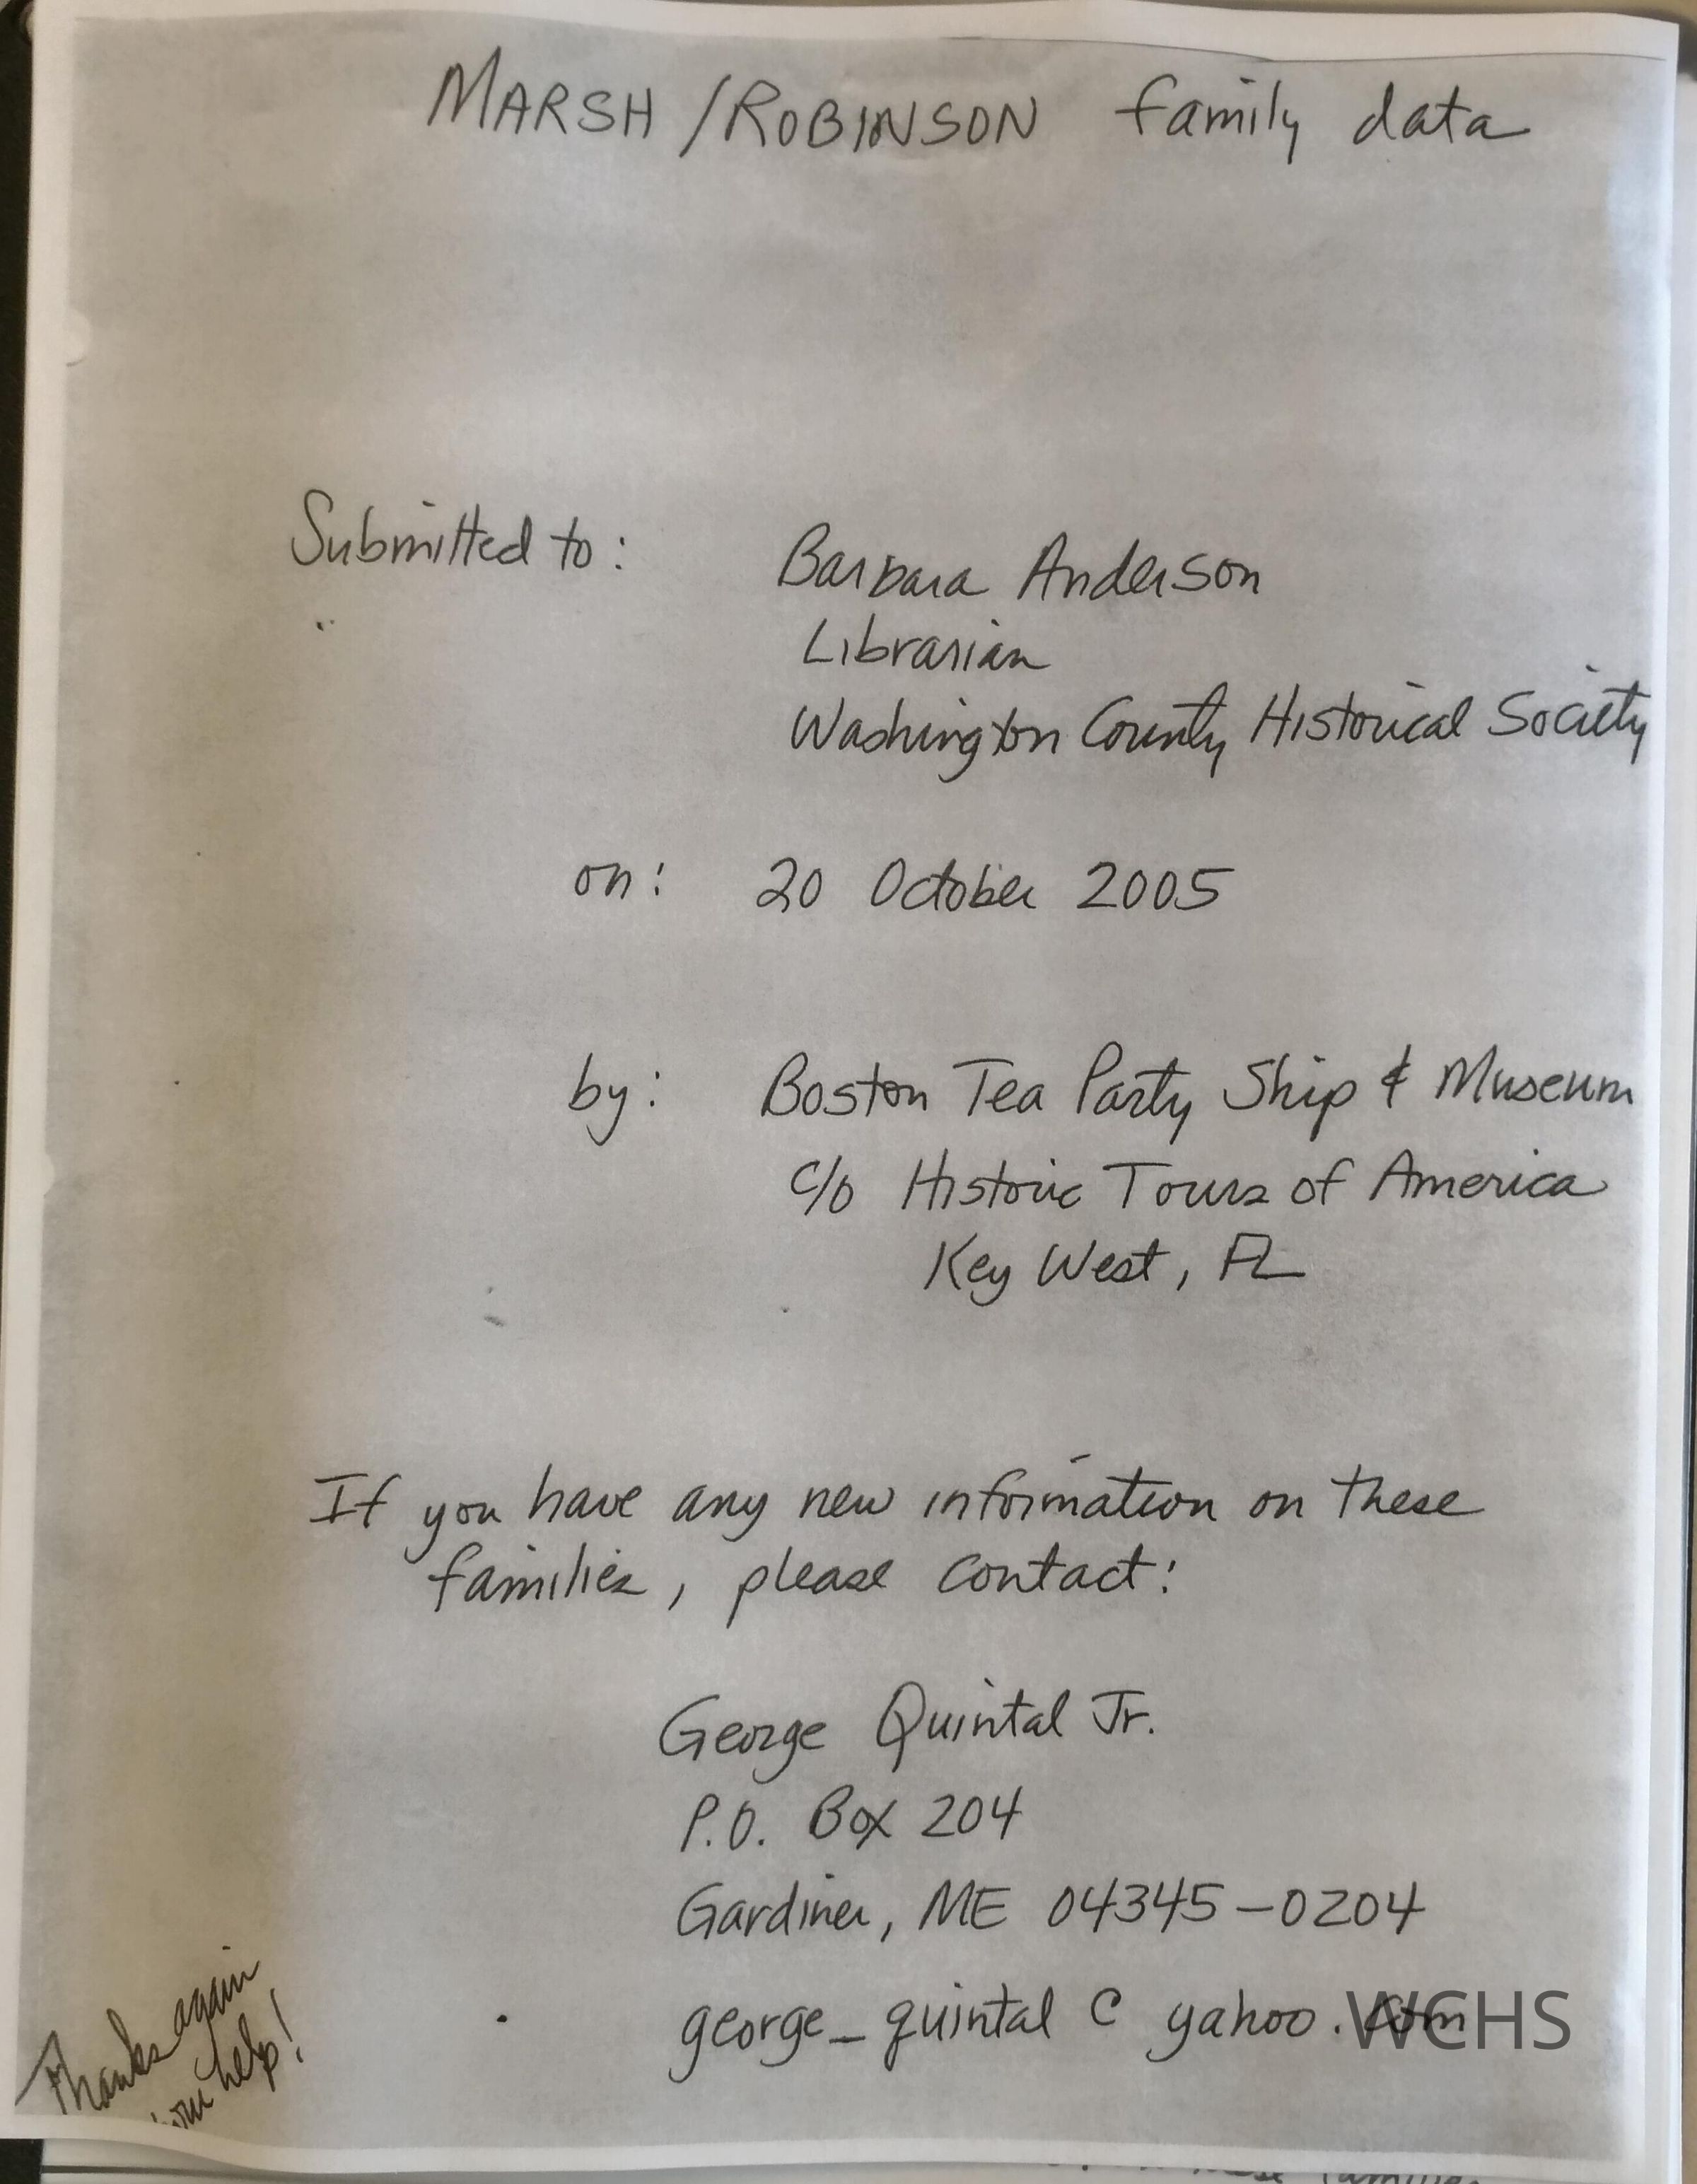 MARSH / ROBINSON family data
Submitted to:
Barbara Anderson
Librarian
Washington County Historical Society
on: 20 October 2005
by: Boston Tea Party Ship & Museum
c/o Historic Tours of America
Key West, FL
If you have any new information on these
families, please contact:
George Quintal Jr.
P.O. Box 204
Gardiner, ME 04345-0204
george_quintal @ yahoo.com
WCHS
Thanks again
your help!